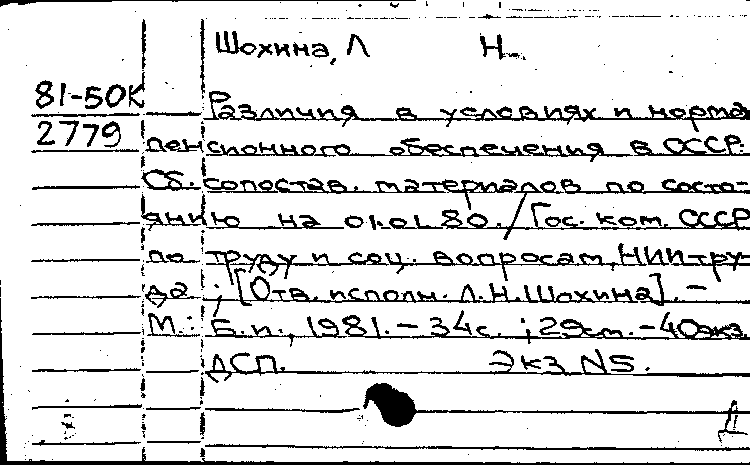 Шохина, Л Н.
81-50К
Различия в условиях и норма
2779
пенсионного обеспечения в СССР.
Сб. сопостав. материалов по состо-
янию на 01.01.80. / Гос. ком. СССР
по труду и соц. вопросам, НИИ тру-
да ; [Отв. исполн. Л.Н.Шохина]. -
М.: Б.и., 1981. - 34с. ; 29см. - 40экз.
ДСП. Экз N5.
Д